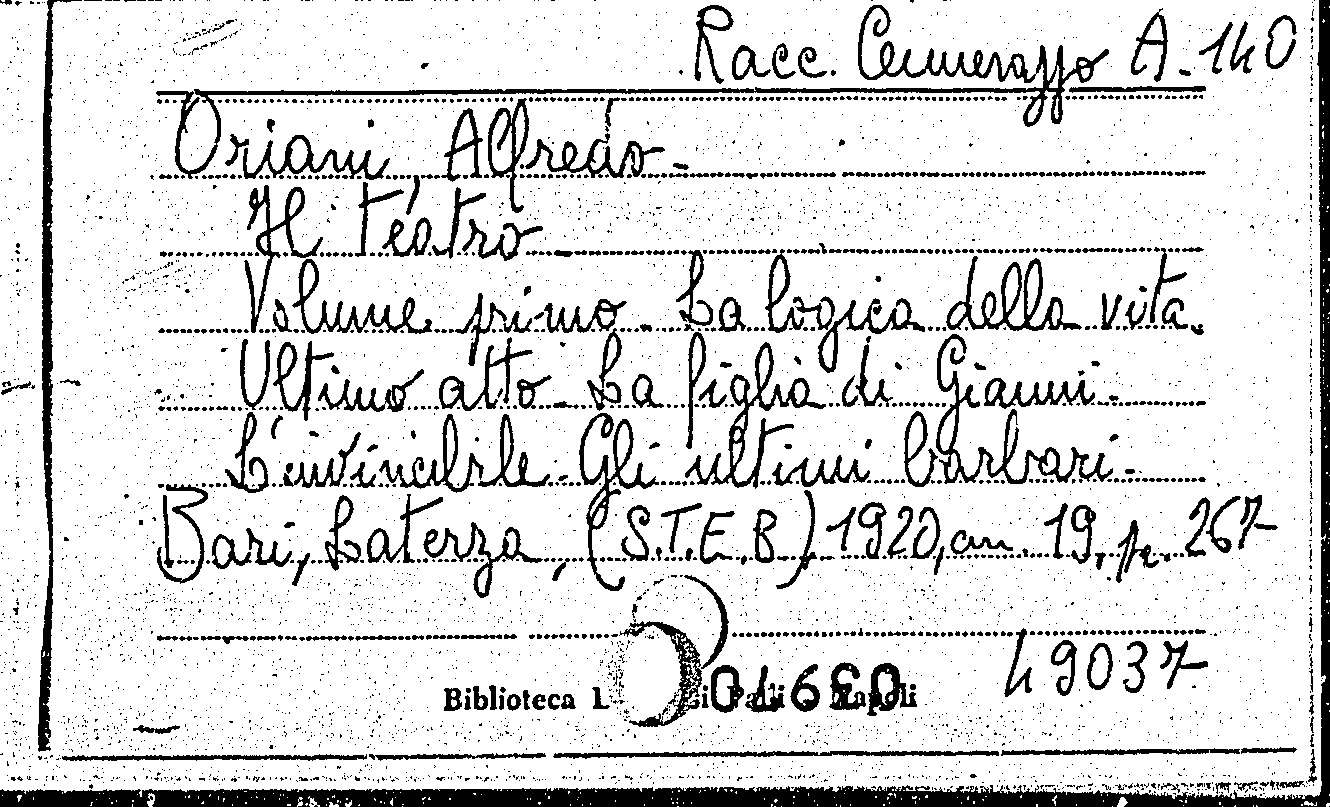 Racc. Cennerazzo A. 140
Oriani, Alfredo -
Il teatro
Volume primo. La logica della vita.
Ultimo atto. La figlia di Gianni.
L'invincibile. Gli ultimi barbari.
Bari, Laterza, (S.T.E.B.) 1920, cm. 19, pp. 267
49037
Biblioteca L ci Napoli